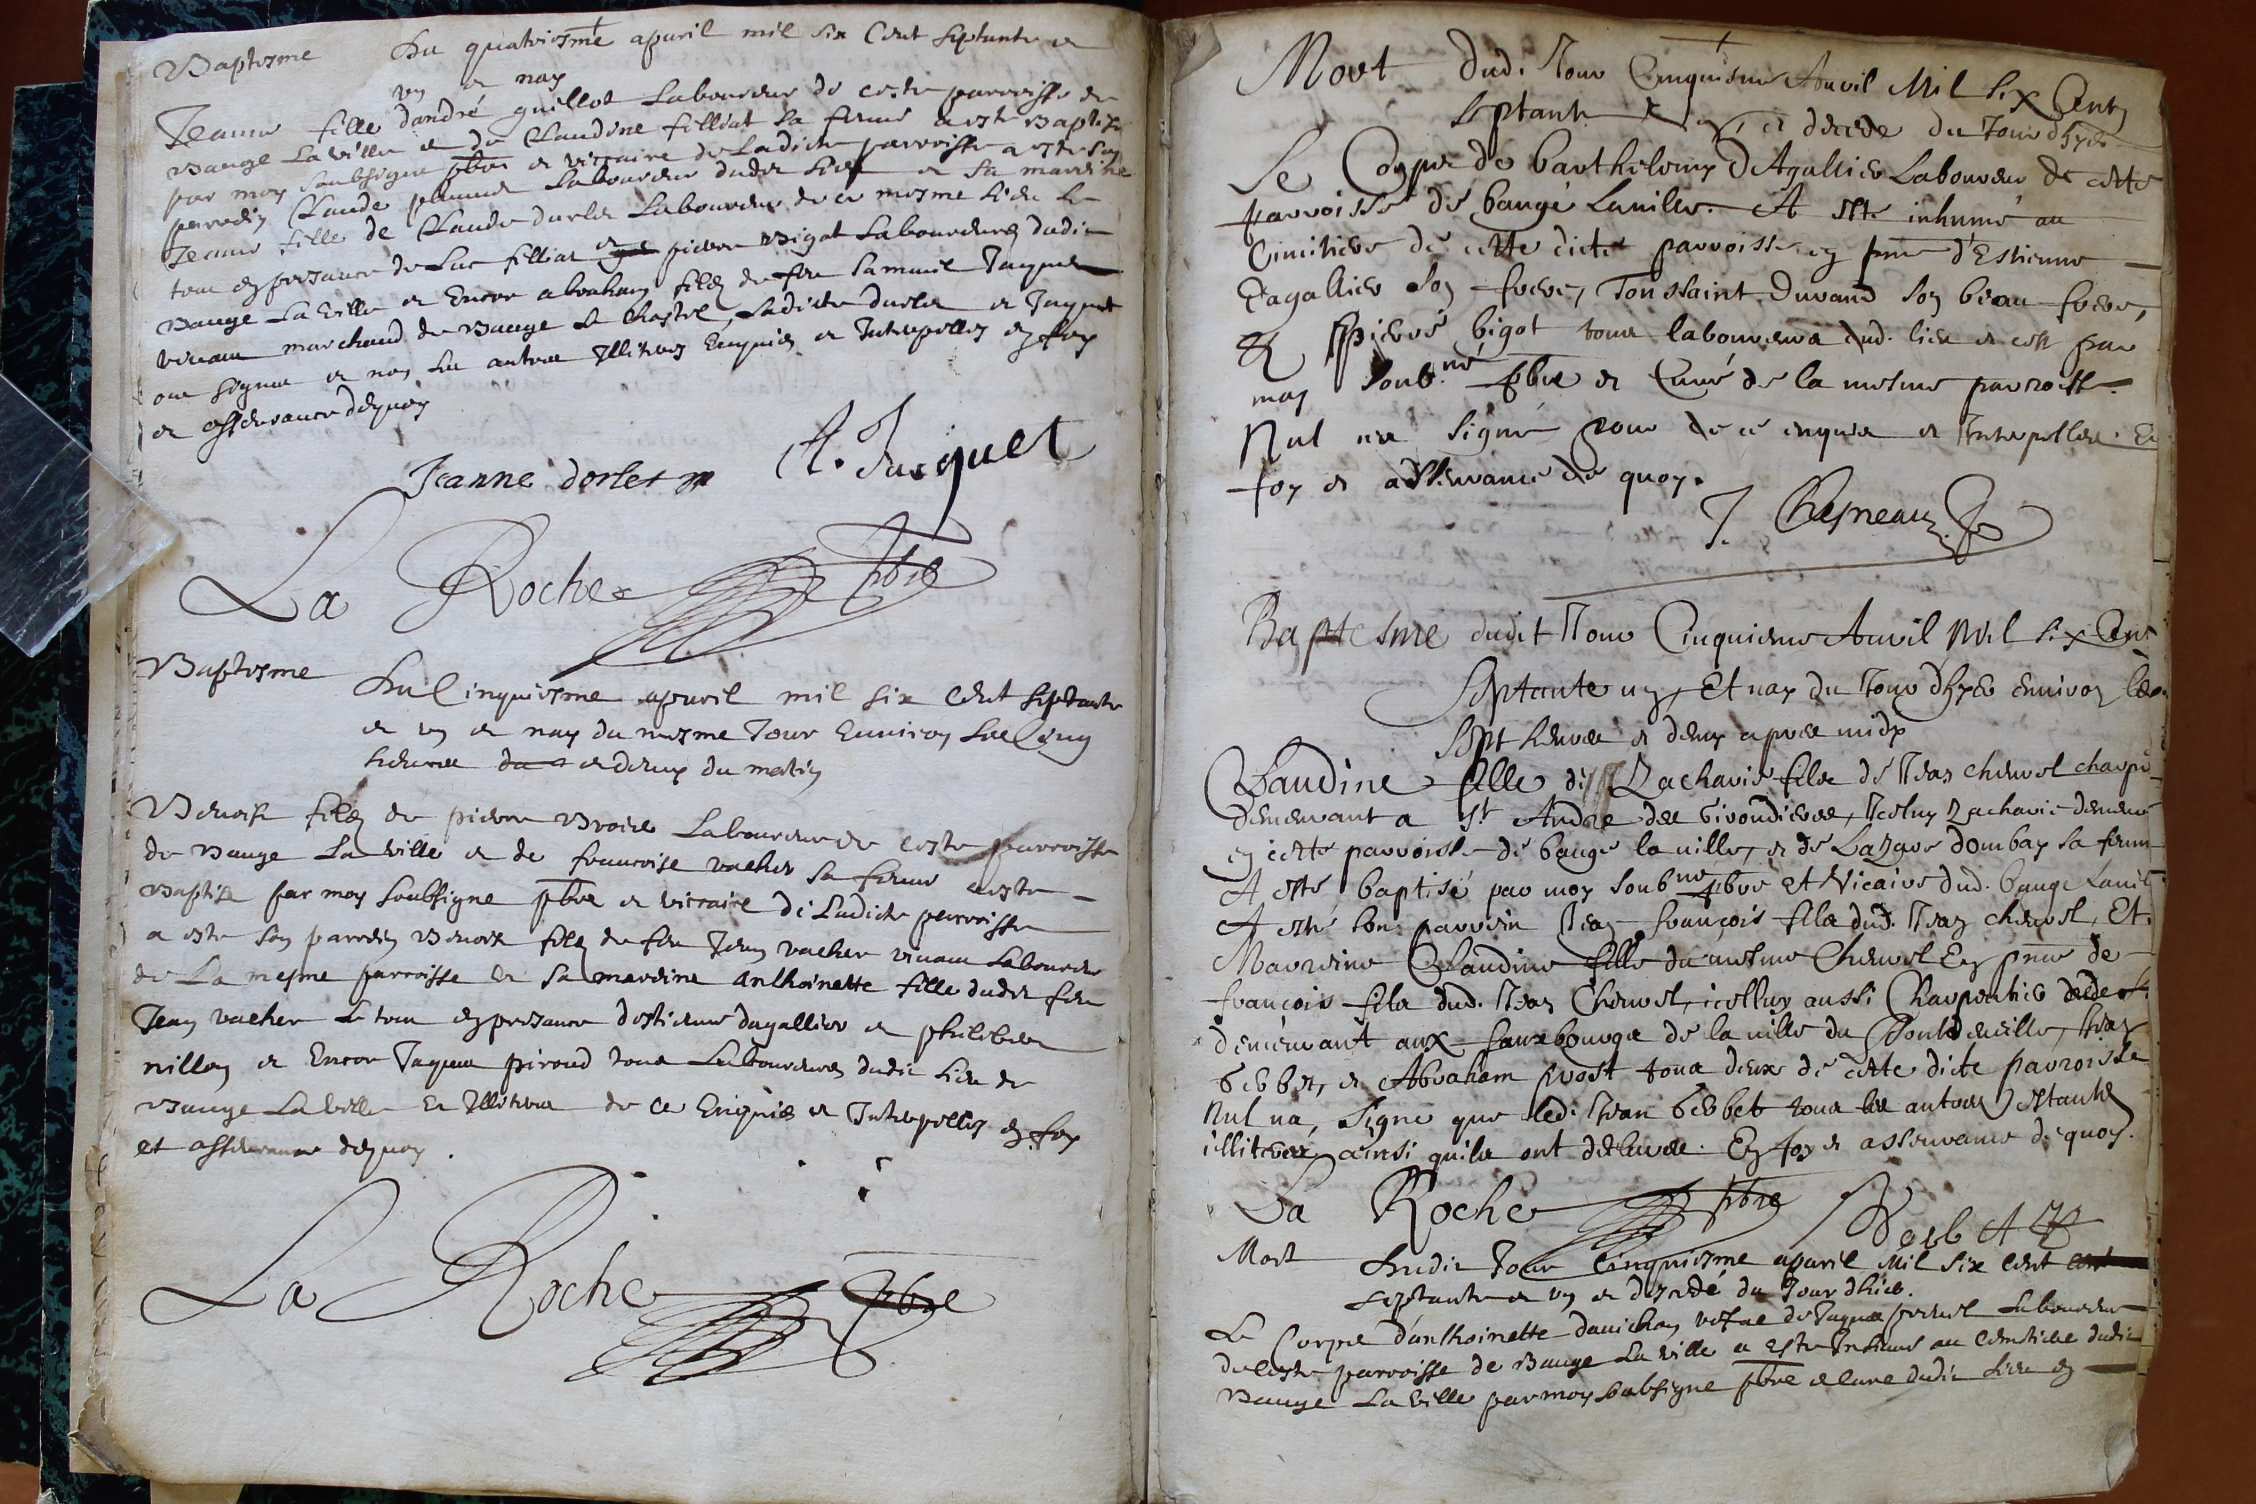 Baptesme Du quatriesme apuril mil six Cent septante et
vn et nay
Jeanne fille dandré guillot Laboureur de ceste parroisse de
Bauge La ville et de Claudine filliat sa feme a este Baptise
par moy soubsigne pbre et viccaire de Ladicte parroisse a este son
parrein Claude Laboureur dudit lieu et sa marreine
Jeanne fille de Claude durlet Laboureur de ce mesme lieu le
tout en presance de Luc filliat et pierre Bigot Laboureurs dudit
Bauge La ville et Encor abraham filz de feu Samuel Jaquet
vivant marchand de Bauge Le Chastel, Ladicte durlet et Jaquet
ont signe et non les autres Illitires Enquis et Interpelles en foy
et asseurance dequoy
Jeanne dorlet A. Jacquet
La Roche pbre
Baptesme
Du Cinquiesme apuril mil six Cent septante
et vn et nay du mesme Jour Enuiron les Cinq
heures du et demy du matin
Benoist filz de pierre Broies Laboureur de ceste parroisse
de Bauge La ville et de francoise vacher sa feme a este
Baptise par moy soubsigne pbre et viccaire de Ladicte parroisse
a este son parrein Benoist filz de feu Jean vacher vivant Laboureur
de La mesme parroisse et sa marreine anthoinette fille dudit feu
Jean vacher Le tout en presance destienne dagallier et philibert
nillon et Encor Jaques piroud tous Laboureurs dudit lieu de
Bauge La ville Et Illitires de ce Enquis et Interpelles en foy
et asseurance dequoy.
La Roche pbre
Mort Dud. Jour Cinquiesme Auril Mil six Cents
septante et decede du Jour d'hyer
Le Corps de barthelemy D'Agallier Laboureur de cette
parroisse de baugé lauille. A esté inhumé au
Cimitiere de cette dicte parroisse en pnce d'Estienne
d'agallier son frere, Toussaint Durand son beau frere,
& Pierre bigot tous laboureurs dud. lieu et cest par
moy soub.né pbre et Curé de la mesme parroisse.
Nul na signé pour de ce enquis et Interpelles. En
foy et asseurance de quoy.
J. Chesneau
Baptesme dudit Jour Cinquiesme Auril Mil six Cent
septante un, Et nay du Jour d'hyer enuiron les
sept heures et demy apres midy
Claudine fille de Zacharie fils de Jean cheurel charp.
demeurant a St André des Girondieres, Iceluy Zacharie demeurt
en cette parroisse de bauge la uille, et de Lazare dombay sa feme
A esté baptisé par moy soub.né pbre Et Vicaire dud. bauge Lauille
A esté son parrein Jean françois fils dud. Jean cheurel, Et
Marreine Claudine fille du mesme Cheurel En pnce de
françois fils dud. Jean Cheurel, icelluy aussi Charpentier
demeurant aux fauxbourgs de la uille du Pontdeueille, Jean
berbet, et Abraham prost tous deux de cette dicte parroisse
Nul na, signé que led. Jean berbet tous les autres estants
illiteres ainsi quils ont declares. En foy et asseurance de quoy.
La Roche pbre
Mort Dudit Jour Cinquiesme apuril Mil six Cent
septante et vn et decedé du Jour d'hier.
Le Corps d'anthoinette dauichon vefue de Jaques Laboureur
de Ceste parroisse de Bauge La ville a este Inhume au Cemetiere dudit
Bauge La ville par moy soubsigne pbre et Cure dudit lieu en